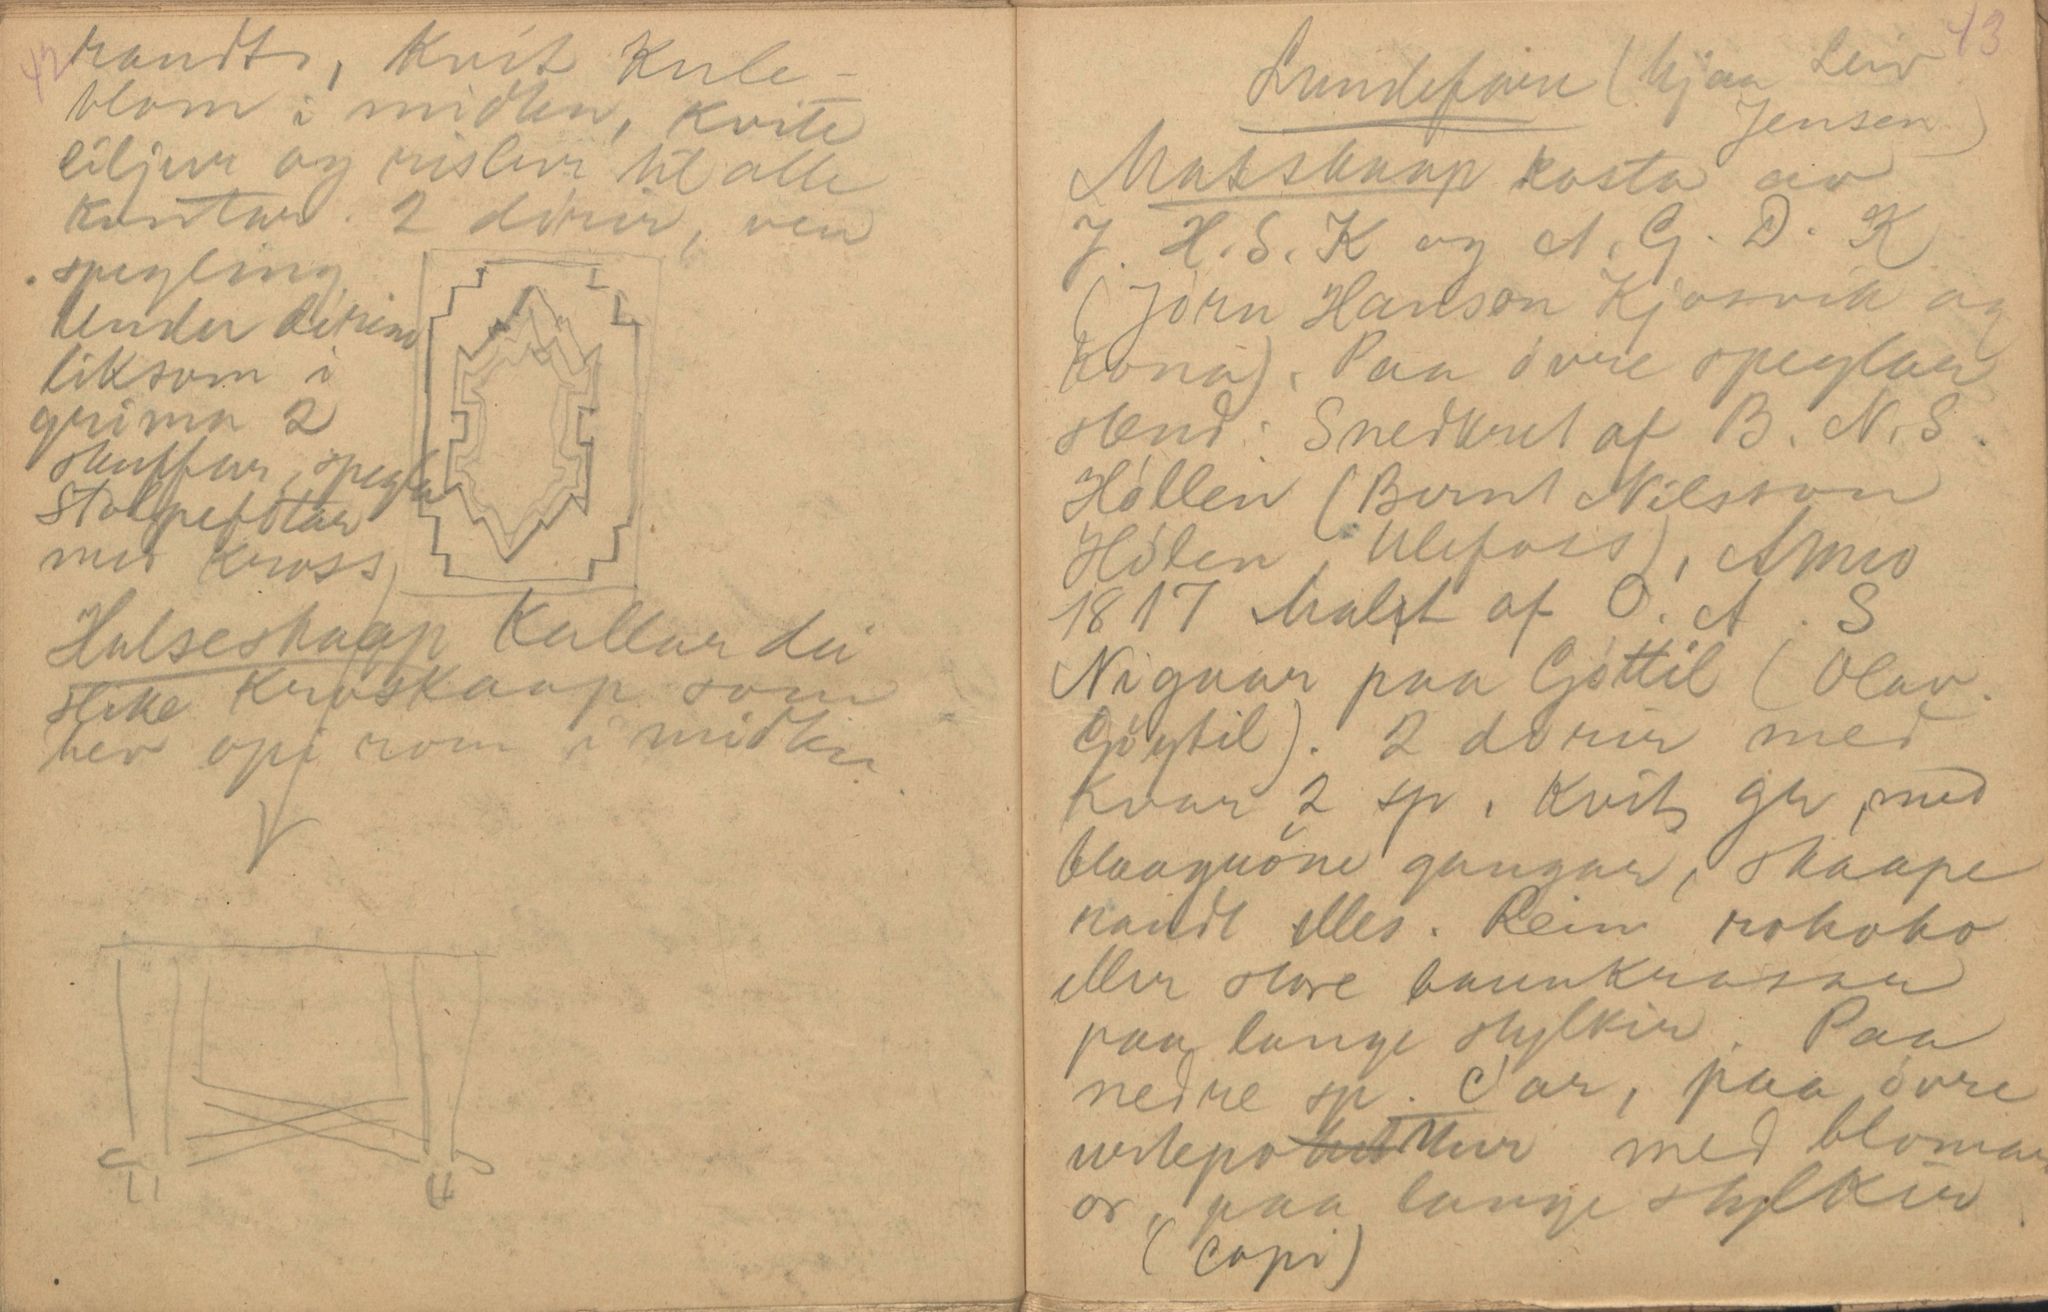 42
raudt, Kvit Kule-
blom i midten, Kvite
liljur og rislur til alle
Kantar. 2 dörir, ven
spegling
Under dörine
liksom i
grima 2
skuffur, spegla
Stolpefötar
med Kross
Halseskaap Kallar dei
slike Kröskaap som
hev opi rom i midten
43
Lundefaru (hjaa Leiv
Jensen)
Matskaap kosta av
J. H. S. K og A. G. D. K
(Jörn Hanson Kjosvik og
Kona). Paa övre speglar
stend: Snedkret af B. N. S.
Höllen (Bernt Nilsson
Hölen, Ulefoss), Anno
1817 Malet af O. A. S
Niguar paa Göttil (Olav
Göytil). 2 dörir med
Kvar 2 sp. Kvit gr, med
blaagröne gangar, skaape
raudt elles. Rein rokoko
eller store baunkrossar
paa lange stylkir. Paa
nedre sp. C'ar, paa övre
urtepottur med blomar
or, paa lange stylkir
(Copi)